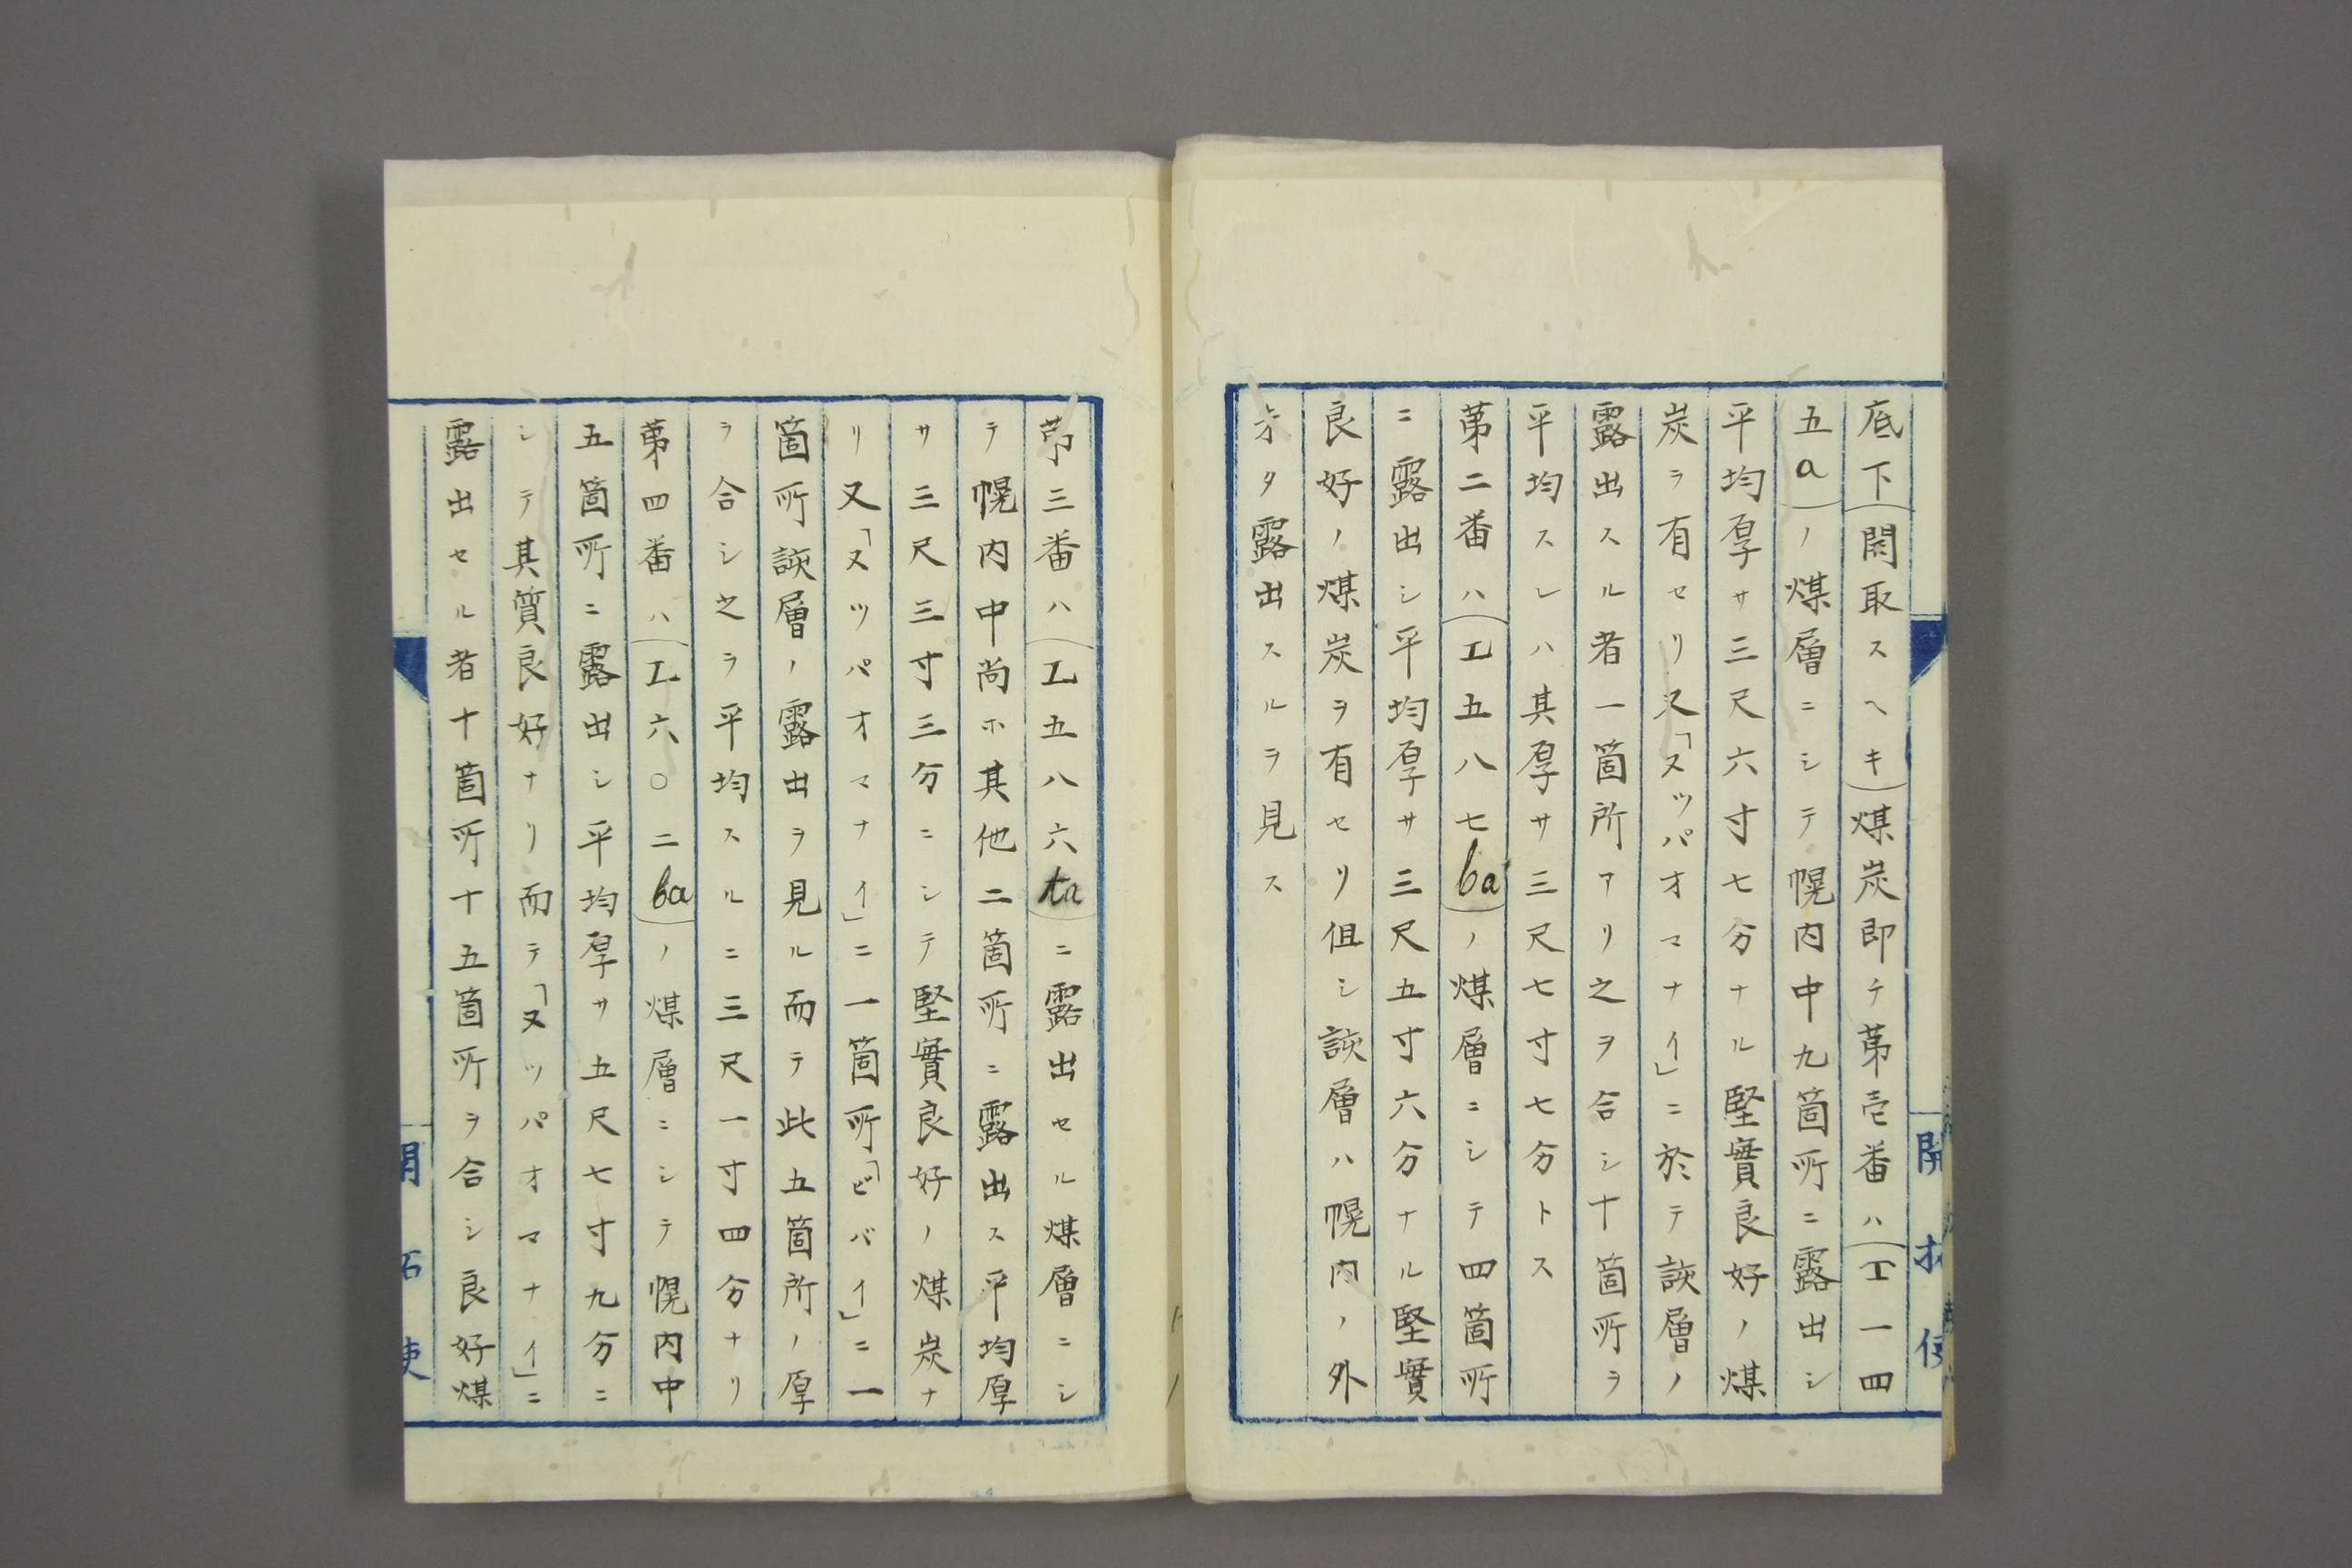 底下(開取スヘキ)煤炭即チ苐壱番ハ(工一四
五a)ノ煤層ニシテ幌内中九箇所ニ露出シ
平均厚サ三尺六寸七分ナル堅實良好ノ煤
炭ヲ有セリ又「ヌツパオマナイ」ニ於テ該層ノ
露出スル者一箇所アリ之ヲ合シ十箇所ヲ
平均スレハ其厚サ三尺七寸七分トス
苐二番ハ(工五八七ba)ノ煤層ニシテ四箇所
ニ露出シ平均厚サ三尺五寸六分ナル堅實
良好ノ煤炭ヲ有セリ但シ該層ハ幌内ノ外
未タ露出スルヲ見ス
開拓使
苐三番ハ(工五八六ta)ニ露出セル煤層ニシ
テ幌内中尚ホ其他二箇所ニ露出ス平均厚
サ三尺三寸三分ニシテ堅實良好ノ煤炭ナ
リ又「ヌツパオマナイ」ニ一箇所「ビバイ」ニ一
箇所該層ノ露出ヲ見ル而テ此五箇所ノ厚
ヲ合シ之ヲ平均スルニ三尺一寸四分ナリ
苐四番ハ(工六〇二ba)ノ煤層ニシテ幌内中
五箇所ニ露出シ平均厚サ五尺七寸九分ニ
シテ其質良好ナリ而テ「ヌツパオマナイ」ニ
露出セル者十箇所十五箇所ヲ合シ良好煤
開拓使